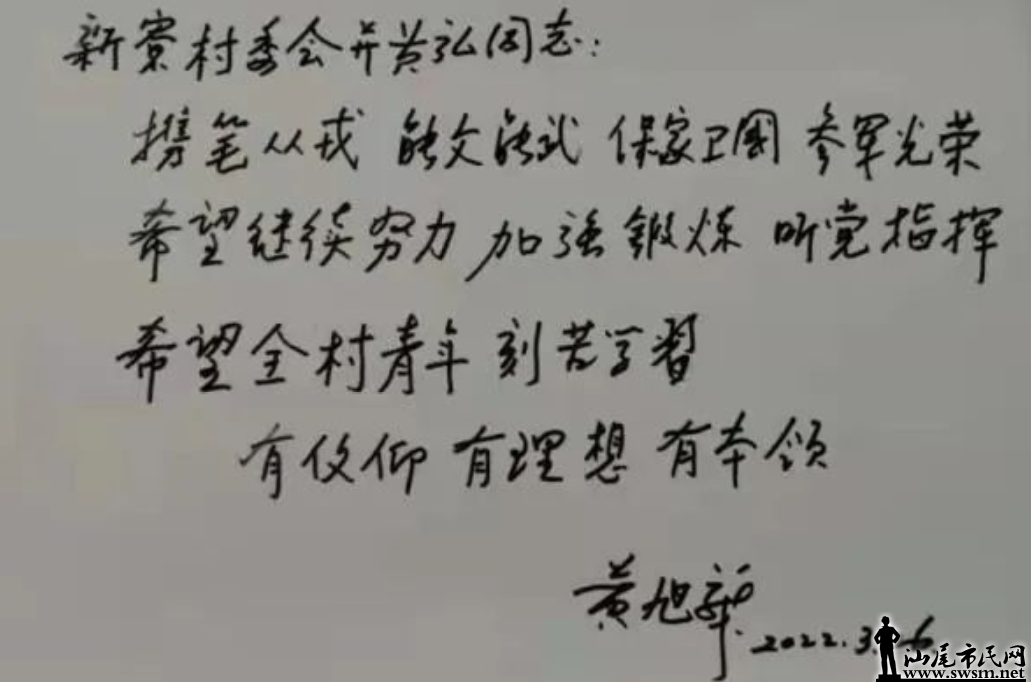 新寮村委会并黄弘同志：
携笔从戎 能文能武 保家卫国 参军光荣
希望继续努力 加强锻炼 听党指挥
希望全村青年 刻苦学习
有信仰 有理想 有本领
黄旭华
2022.3.6
汕尾市民网
www.swsm.net